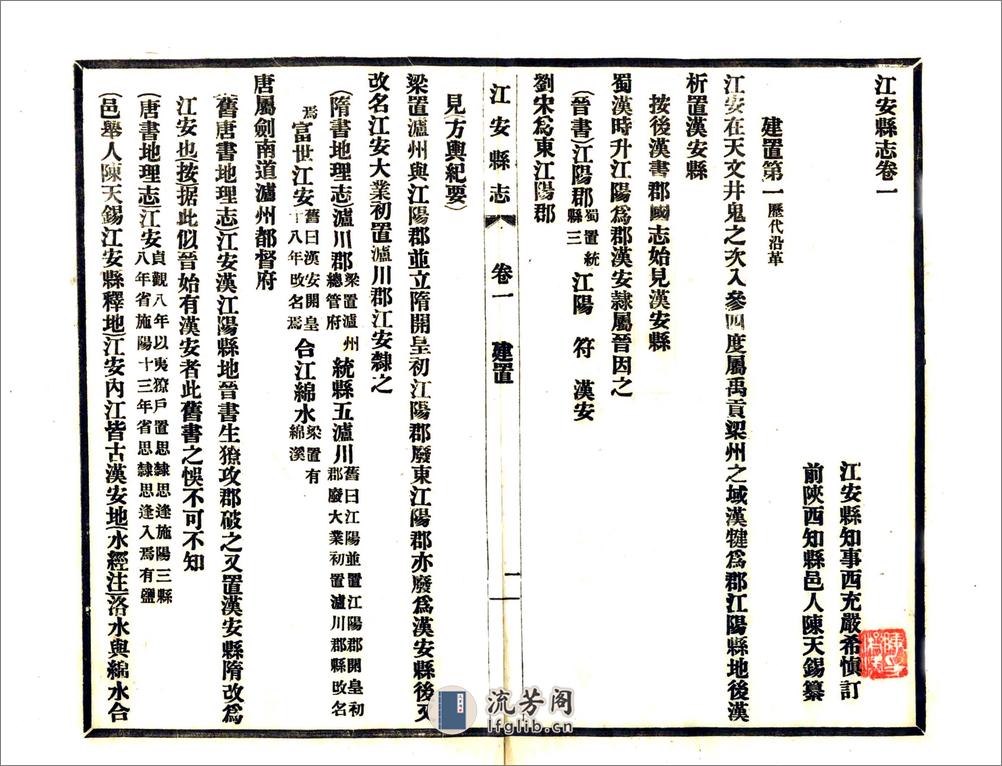 江安縣志卷一
江安縣知事西充嚴希慎訂
前陝西知縣邑人陳天錫纂
建置第一歷代沿革
江安在天文井鬼之次入參四度屬禹貢梁州之域漢犍爲郡江陽縣地後漢
析置漢安縣
按後漢書郡國志始見漢安縣
蜀漢時升江陽爲郡漢安隸屬晉因之
(晉書)江陽郡蜀置統縣三江陽 符 漢安
劉宋爲東江陽郡
江安縣志 卷一 建置 一
見方輿紀要)
梁置瀘州與江陽郡並立隋開皇初江陽郡廢東江陽郡亦廢爲漢安縣後又
改名江安大業初置瀘川郡江安隸之
(隋書地理志)瀘川郡梁置瀘州總管府統縣五瀘川舊曰江陽並置江陽郡開皇初郡廢大業初置瀘川郡縣改名
焉富世江安舊曰漢安開皇十八年改名焉合江綿水梁置有綿溪
唐屬劍南道瀘州都督府
(舊唐書地理志)江安漢江陽縣地晉書生獠攻郡破之又置漢安縣隋改爲
江安也按据此似晉始有漢安者此舊書之悞不可不知
(唐書地理志)江安貞觀八年以夷獠戶置思隸思逢施陽三縣八年省施陽十三年省思隸思逢入焉有鹽
(邑舉人陳天錫江安縣釋地)江安內江皆古漢安地(水經注)洛水與綿水合
流芳阁
lfglib.cn